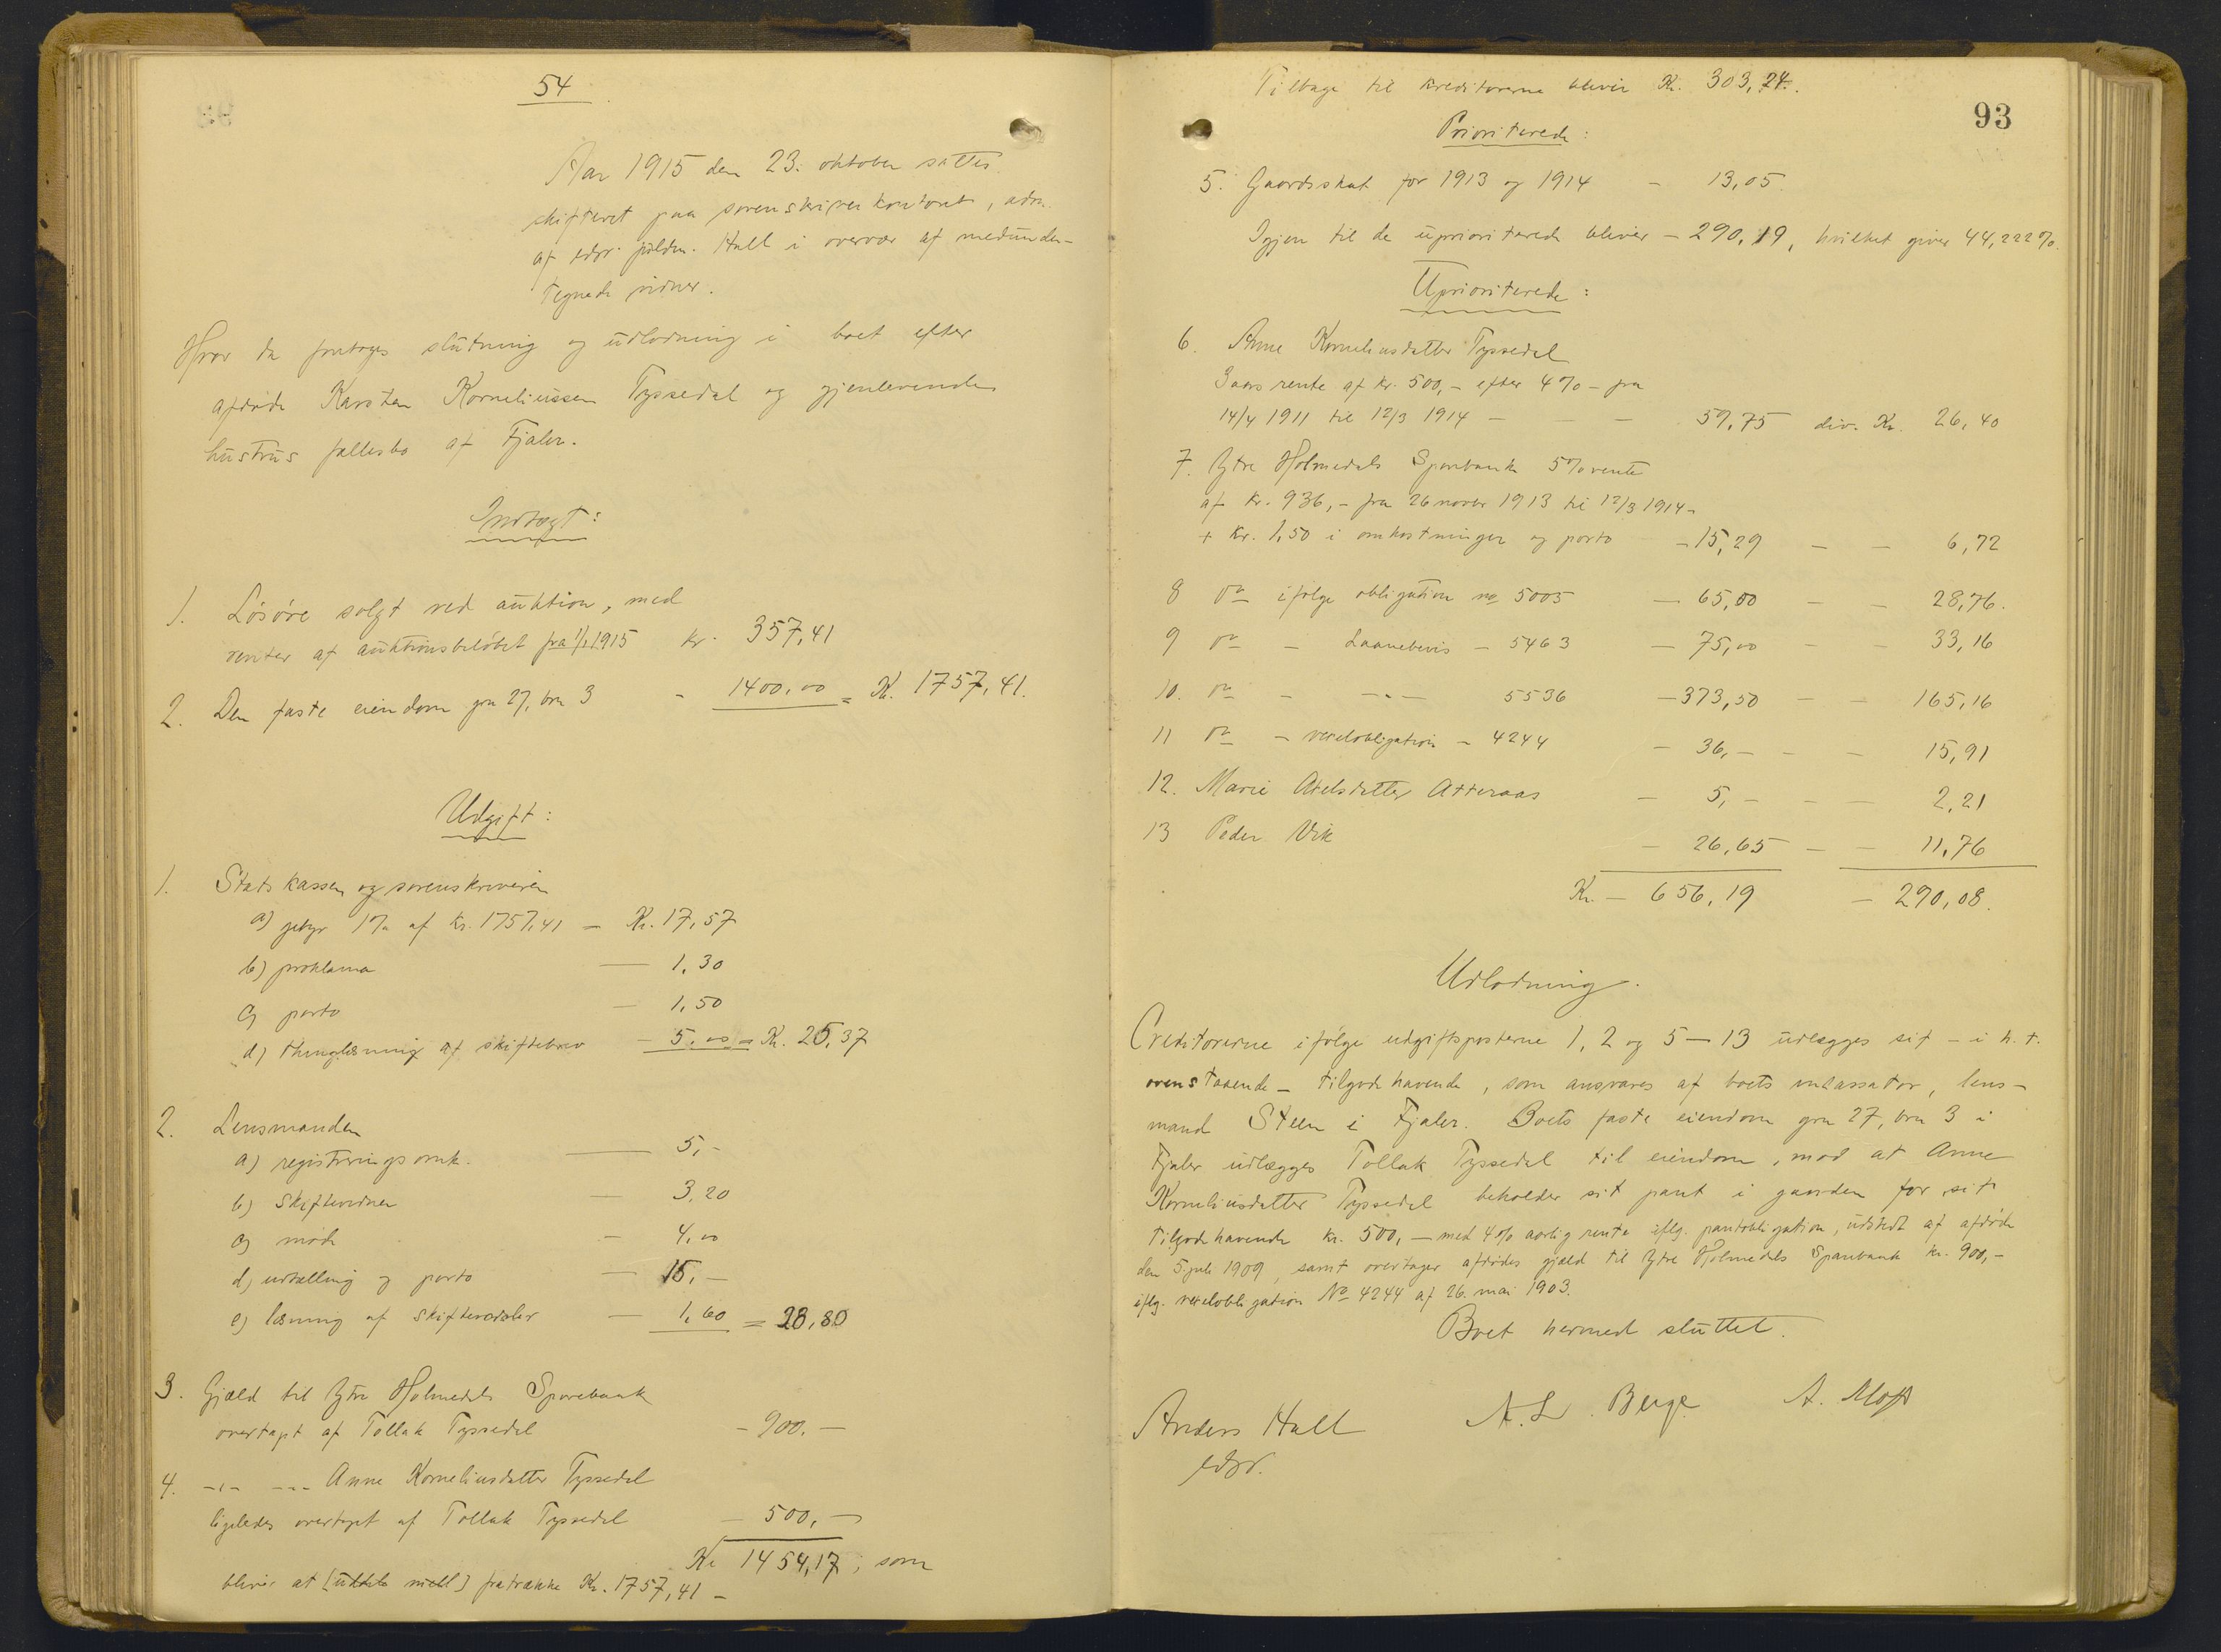 54
Aar 1915 den 23. oktober sattes
skifteret paa sorenskriverkontoret, adm.
af edsv. fuldm. Hall i overvær af medunder-
tegnede vidner.
Hvor da foretoges slutning og udlodning i boet efter
afdøde Karsten Korneliussen Tyssedal og gjenlevende
hustrus fællesbo af Fjaler.
Indtægt:
1. Løsøre solgt ved auktion, med
renter af auktionsbeløbet fra 1/1 1915 kr. 357,41
2. Den faste eiendom gn 27, bn 3 - 1400,00 = Kr. 1757,41.
Udgift:
1. Statskassen og sorenskriveren
a) gebyr 1% af kr. 1757,41 — Kr. 17,57
b) proklama — 1,30
c) porto — 1,50
d) thinglæsning af skiftebrev — 5,00 = Kr. 25,37
2. Lensmanden
a) registreringsomk. — 5,-
b) Skiftevidner — 3,20
c) møde — 4,00
d) udtælling og porto — 15,—
e) læsning af skifteværdsler — 1,60 = 28,80
3. Gjæld til Ytre Holmedals Sparebank
overtagt af Tollak Tyssedal - 900,—
4. -"- -"- Anne Korneliusdatter Tyssedal
ligeledes overtaget af Tollak Tyssedal — 500,—
Kr 1454,17, som
bliver at fratrække Kr. 1757,41 -
Tilbage til kreditorerne bliver Kr. 303,24.
93
Prioriterede:
5. Gaardsskat for 1913 og 1914 - 13,05.
Igjen til de uprioriterede bliver - 290,19, hvilket giver 44,222%.
Uprioriterede:
6. Anne Korneliusdatter Tyssedal
3 aars rente af kr. 500,- efter 4% - fra
14/4 1911 til 12/3 1914 - - - 59,75 div. Kr. 26,40
7. Ytre Holmedals Sparebank 5% rente
af kr. 936,- fra 26 novbr 1913 til 12/3 1914 -
+ kr. 1,50 i omkostninger og porto - 15,29 - - 6,72
8 do ifølge obligation no 5005 — 65,00 - - 28,76.
9 do - Laanebevis - 5463 — 75,00 - - 33,16
10. do - -"- 5536 — 373,50 - - 165,16
11 do - vexelobligation - 4244 - 36,- - - 15,91
12. Marie Axelsdatter Atteraas - 5,- - - 2,21
13 Peder Vik - 26,65 - - 11,76
Kr. - 656,19 - 290,08.
Udlodning.
Creditorerne ifølge udgiftsposterne 1, 2 og 5 — 13 udlægges sit - i h. t.
ovenstaaende - tilgodehavende, som ansvares af boets inkassator, lens-
mand Steen i Fjaler. Boets faste eiendom gn 27, bn 3 i
Fjaler udlægges Tollak Tyssedal til eiendom, mod at Anne
Korneliusdatter Tyssedal beholder sit pant i gaarden for sit
tilgodehavende kr. 500,- med 4% aarlig rente iflg. pantobligation, udstedt af afdøde
den 5. juli 1909, samt overtager afdødes gjæld til Ytre Holmedals Sparebank kr. 900,-
iflg. vexelobligation No 4244 af 26. mai 1903.
Boet hermed sluttet.
Anders Hall A. L. Berge A. Moss
edsv.